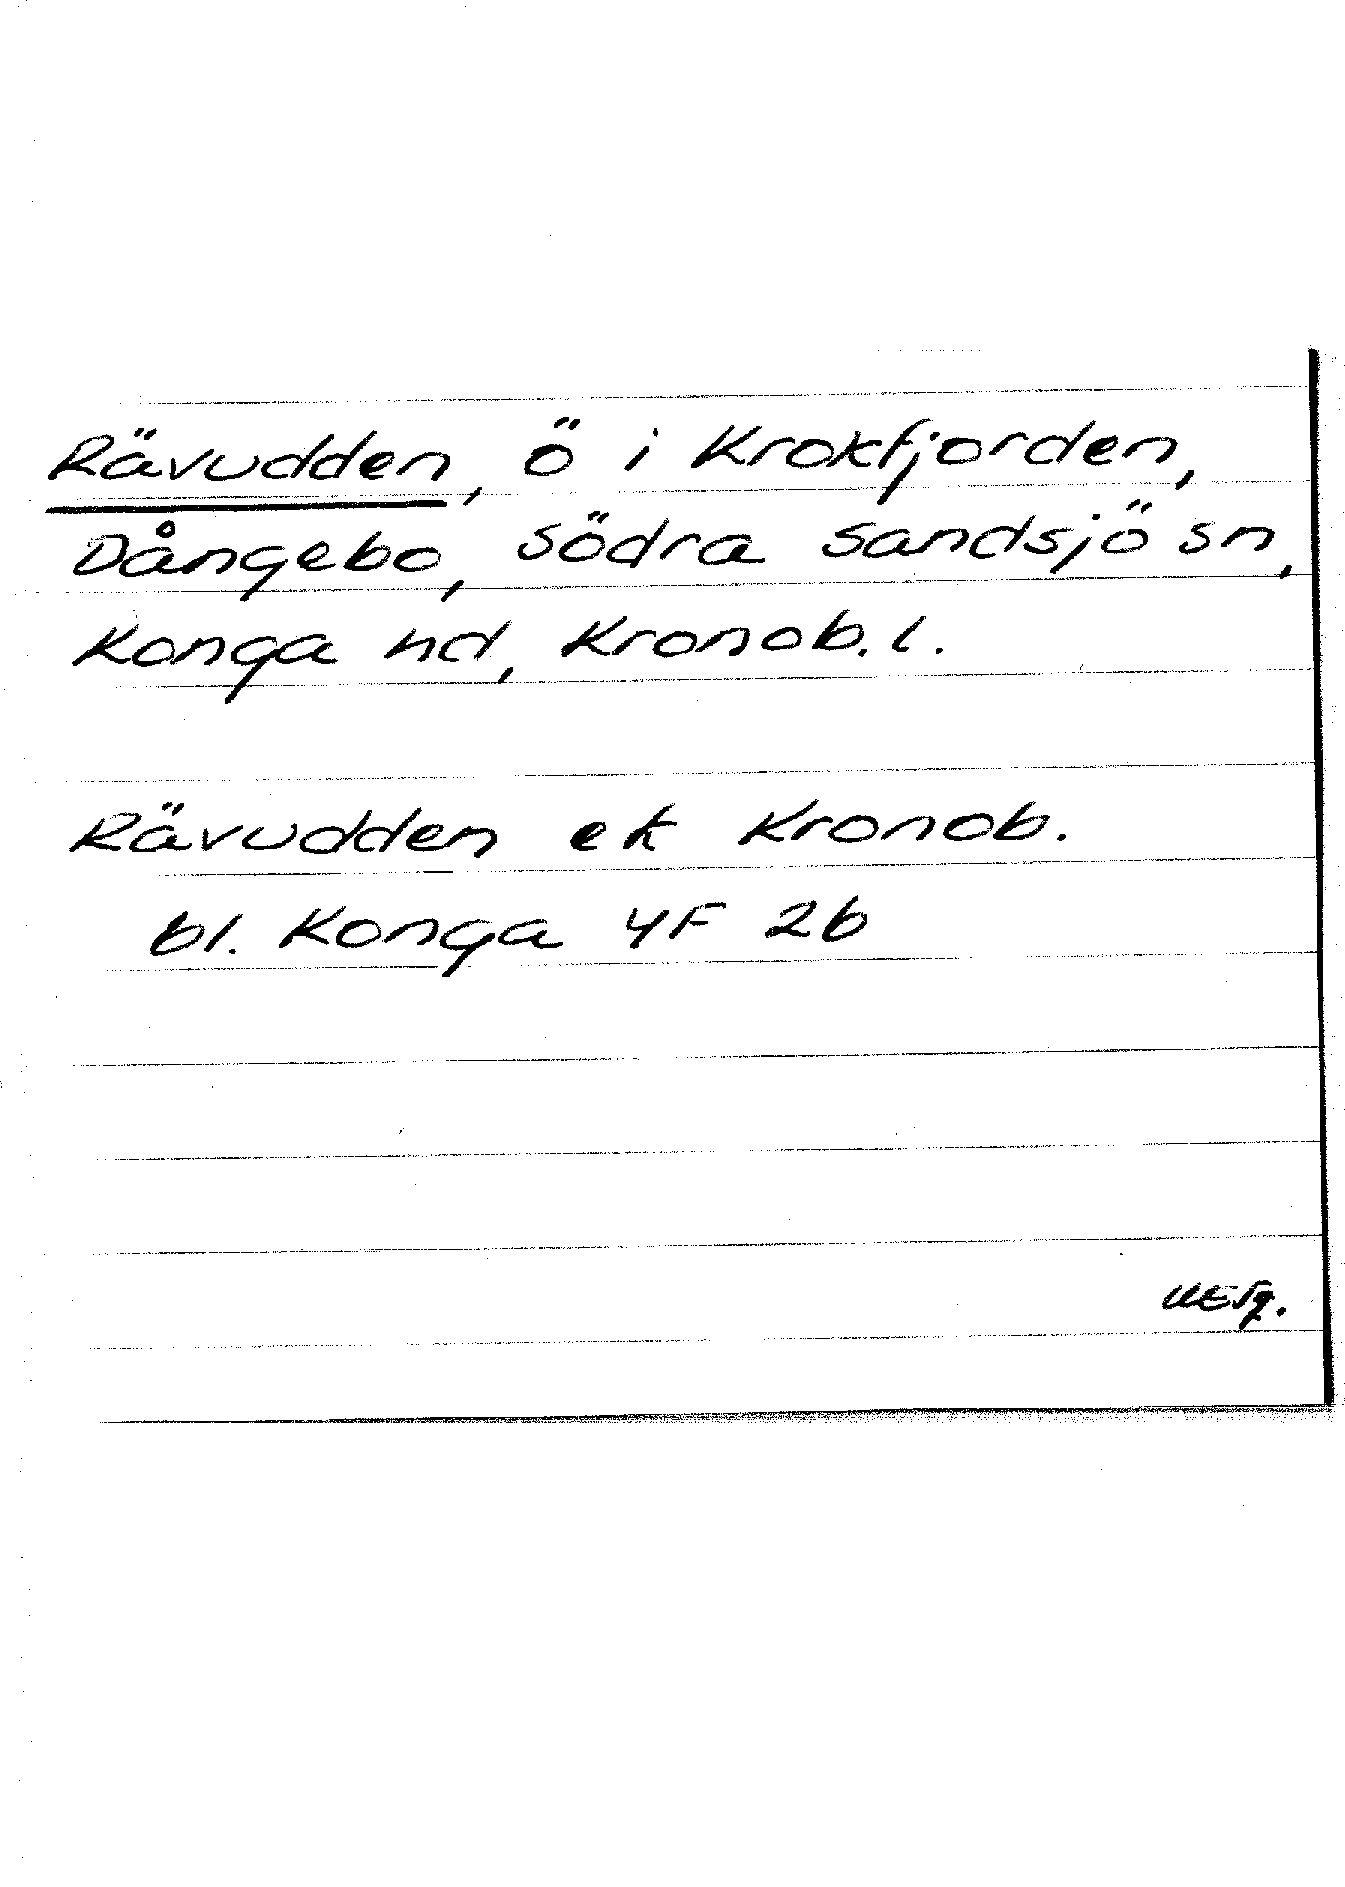 Rävudden, ö i Krokfjorden,
Dångebo, Södra Sandsjö sn,
Konga hd, Kronob. l.
Rävudden ek Kronob.
bl. Konga 4F 2b